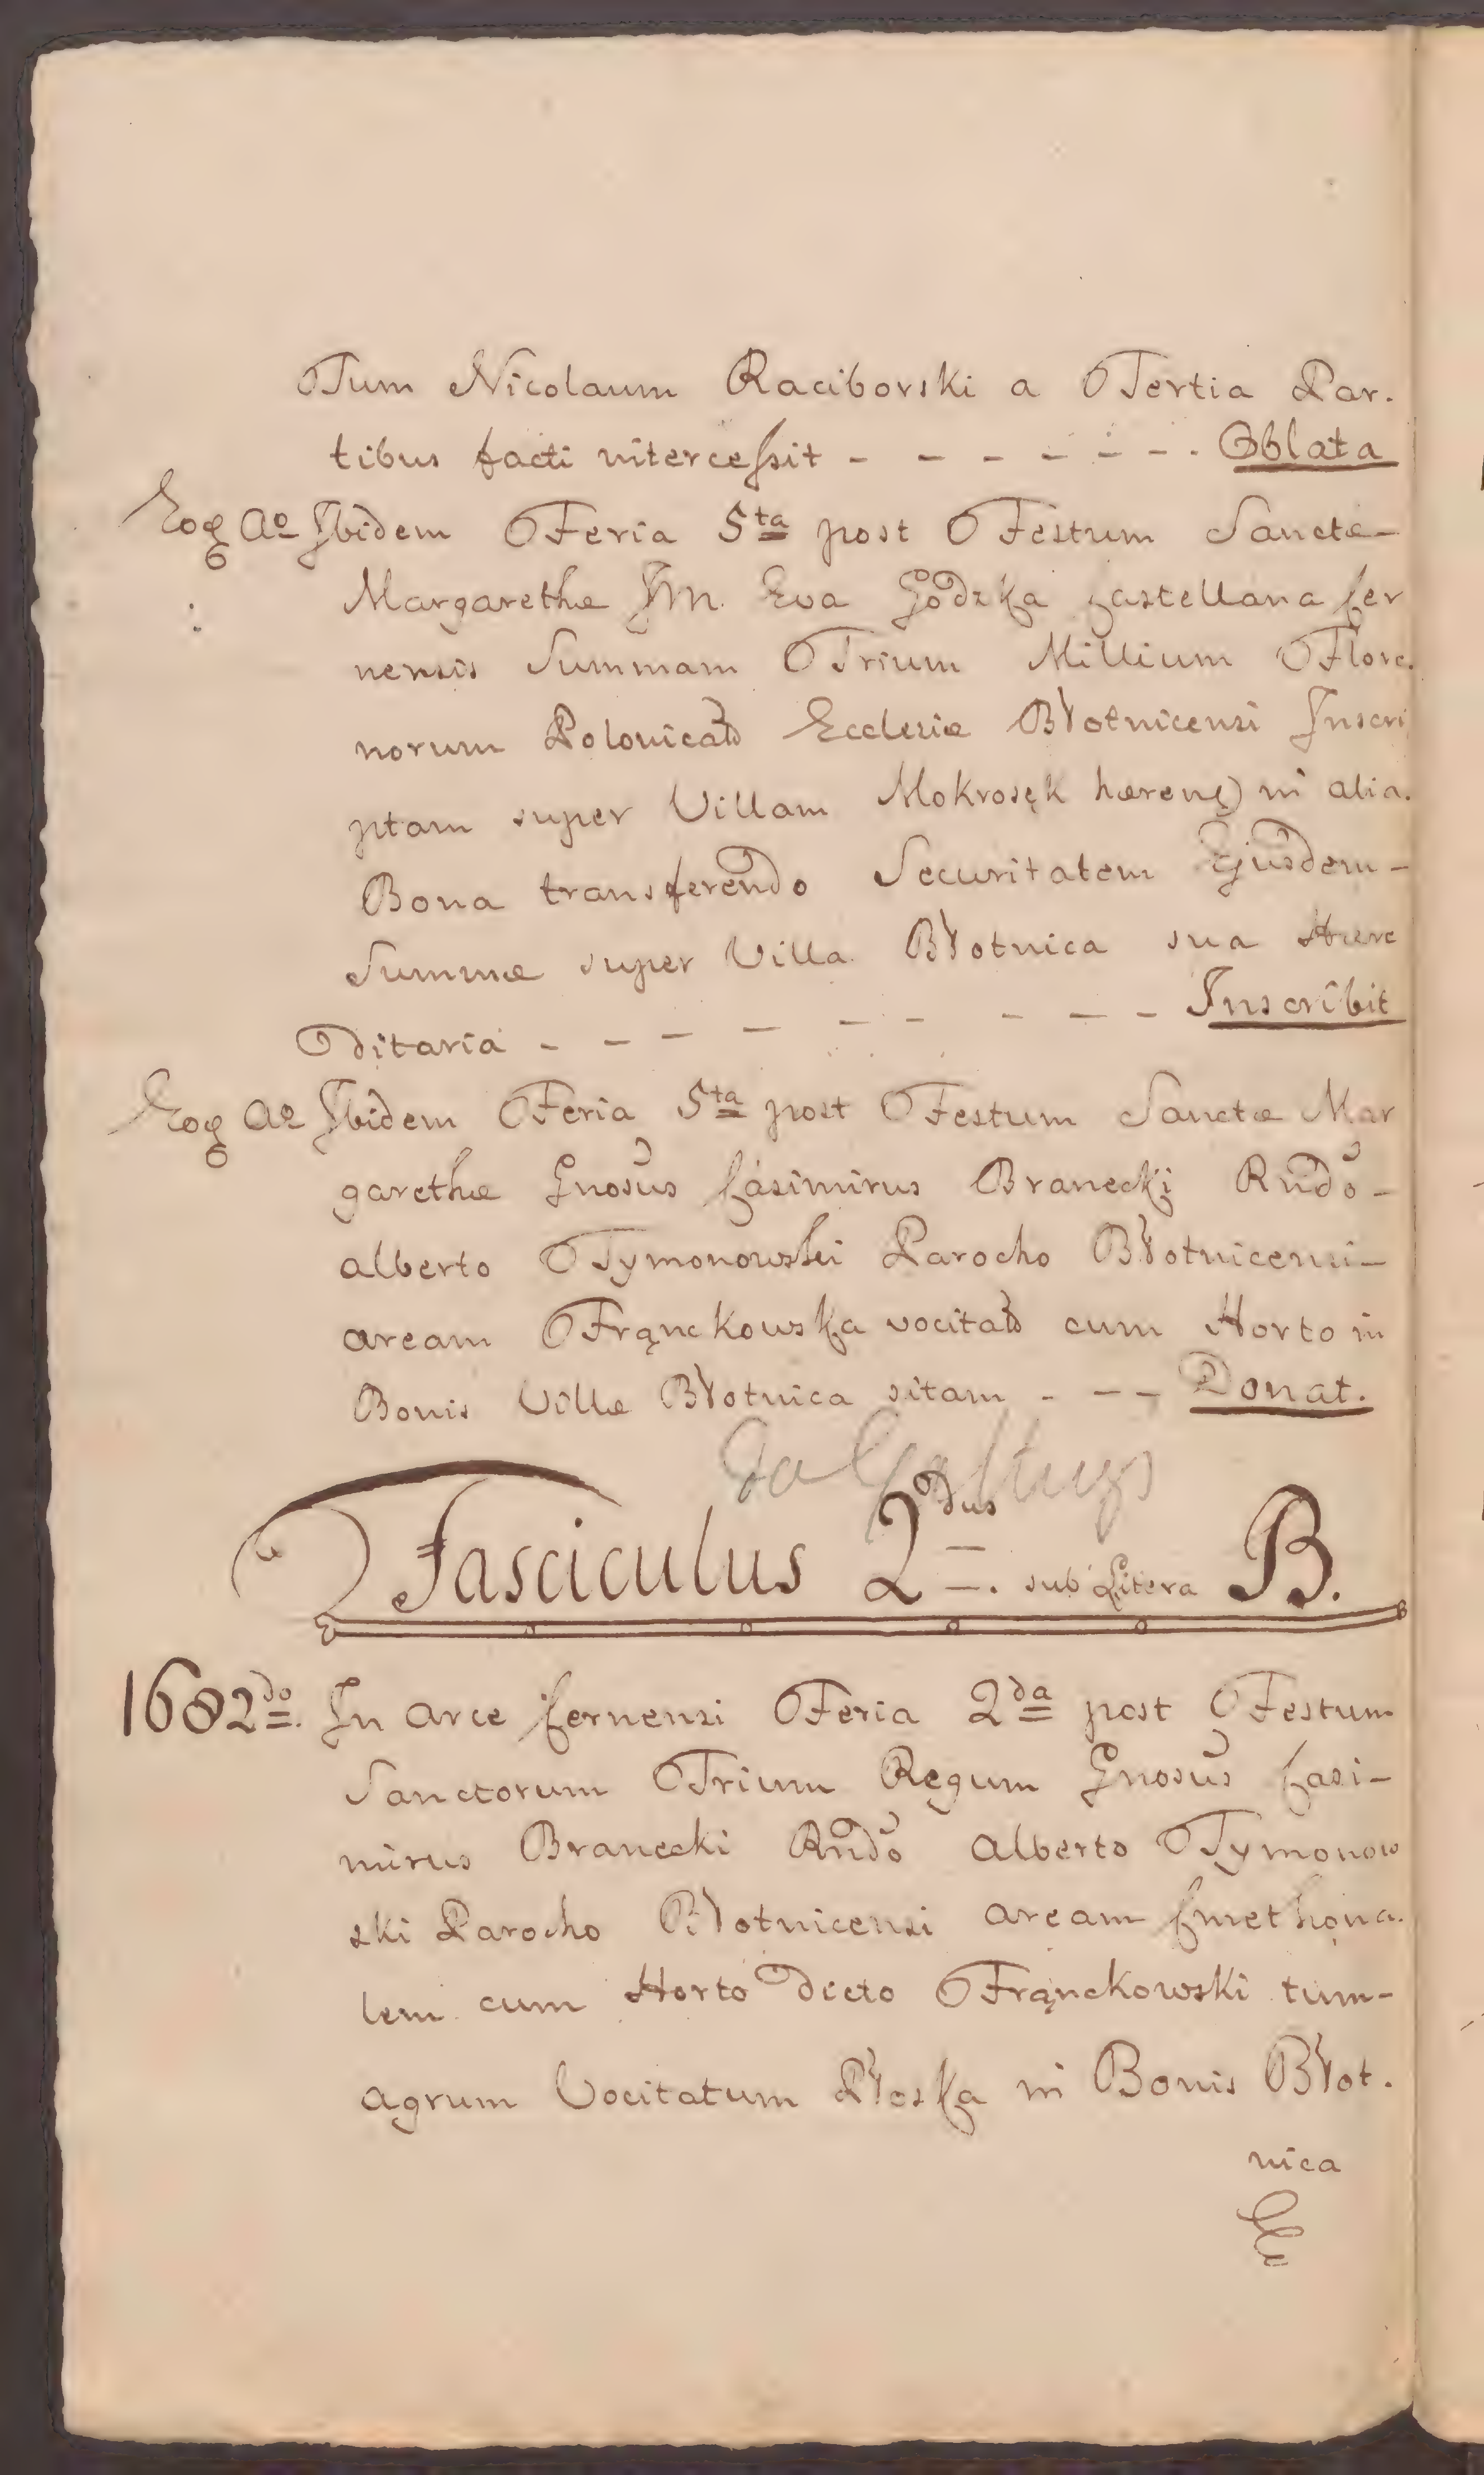 Tum Nicolaum Raciborski a Tertia Par.
tibus facti intercessit - - - - - - - Oblata
Eoq Ao Ibidem Feria 5ta post Festum Sanctæ
Margarethæ Im. Eva Godzka Castellana Cer
nensis Summam Trium Millium Flore.
norum Polonical Ecclesiæ Błotnicensi Inscri
ptam super Villam Mokrosęk hæren in alia.
Bona transferendo Securitatem Ejusdem -
Summæ super Villa Błotnica sua Hære
ditaria - - - - - - - - Inscribit
Eoq Ao Ibidem Feria 5ta post Festum Sanctæ Mar
garethæ Gnosus Casimirus Branecki Rndo -
alberto Tymonowski Parocho Błotnicensi -
aream Frąnckowska vocitat cum Horto in
Bonis Villæ Błotnica sitam - - - Donat.
Fasciculus 2dus. sub Litera B.
1682do. In arce Cernensi Feria 2da post Festum
Sanctorum Trium Regum Gnosus Casi-
mirus Branecki Rndo Alberto Tymonow
ski Parocho Błotnicensi aream Cmethona.
lem cum Horto dicto Frąnckowski tum-
agrum Vocitatum Płoska in Bonis Błot.
nica